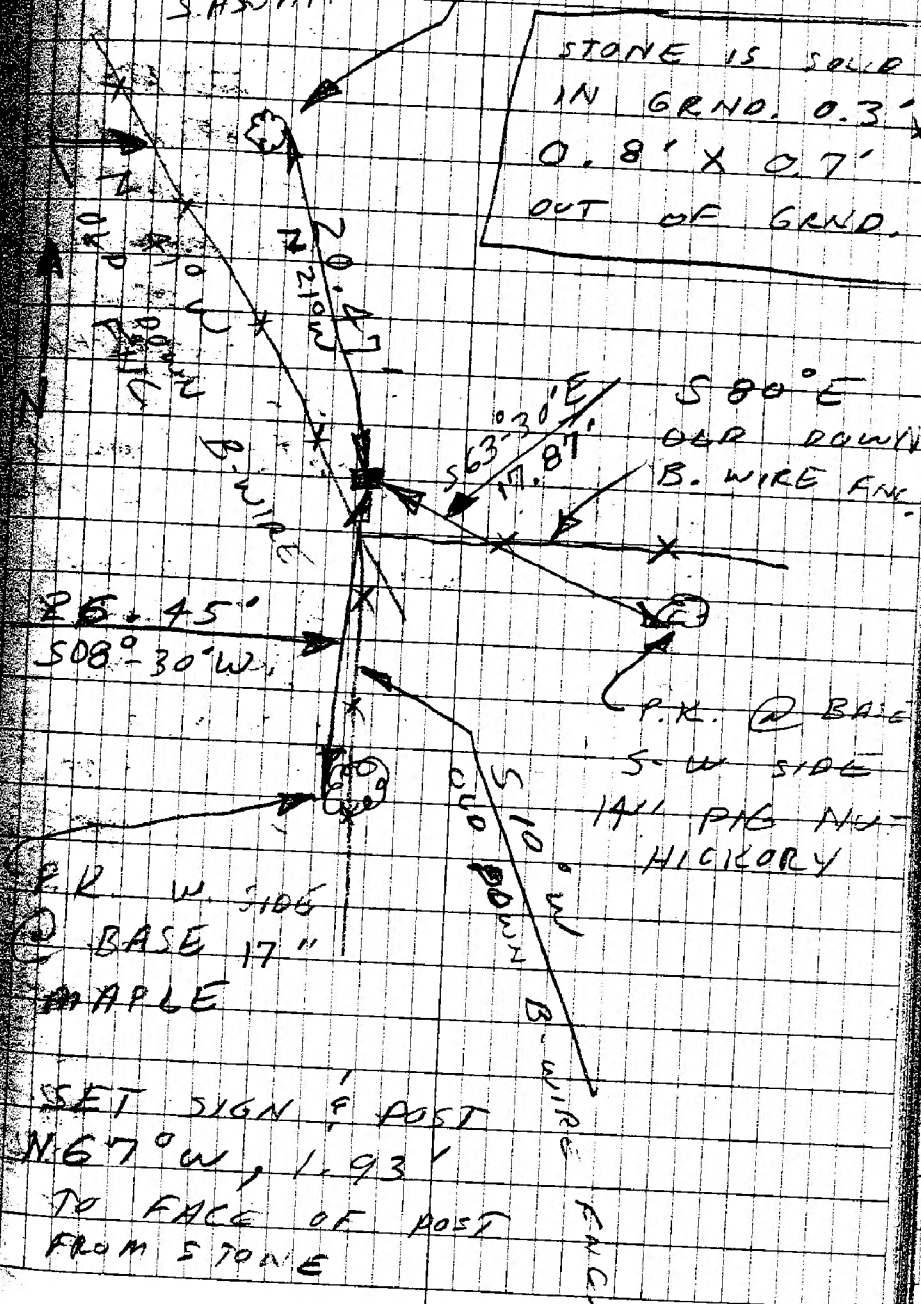 S. ASH
STONE IS SOLID
IN GRND. 0.3'
0.8' X 0.7'
OUT OF GRND.
20.47'
N 21° W
OLD DOWN
B-WIRE
N
S63°-30'E
17.87'
S 80° E
OLD DOWN
B. WIRE FNC.
26.45'
S08°-30'W.
P.K. @ BASE
S-W SIDE
14" PIG NU-
HICKORY
S 10° W
OLD DOWN B-WIRE FNC.
W. SIDE
@ BASE 17"
MAPLE
SET SIGN & POST
N.67°W, 1.93'
TO FACE OF POST
FROM STONE